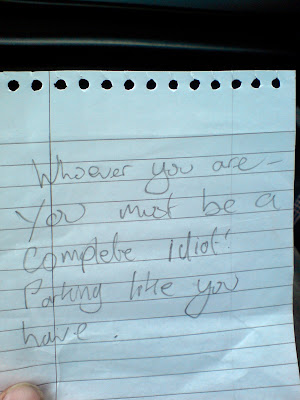 Whoever you are -
You must be a
Complete Idiot!
Parking like you
have.